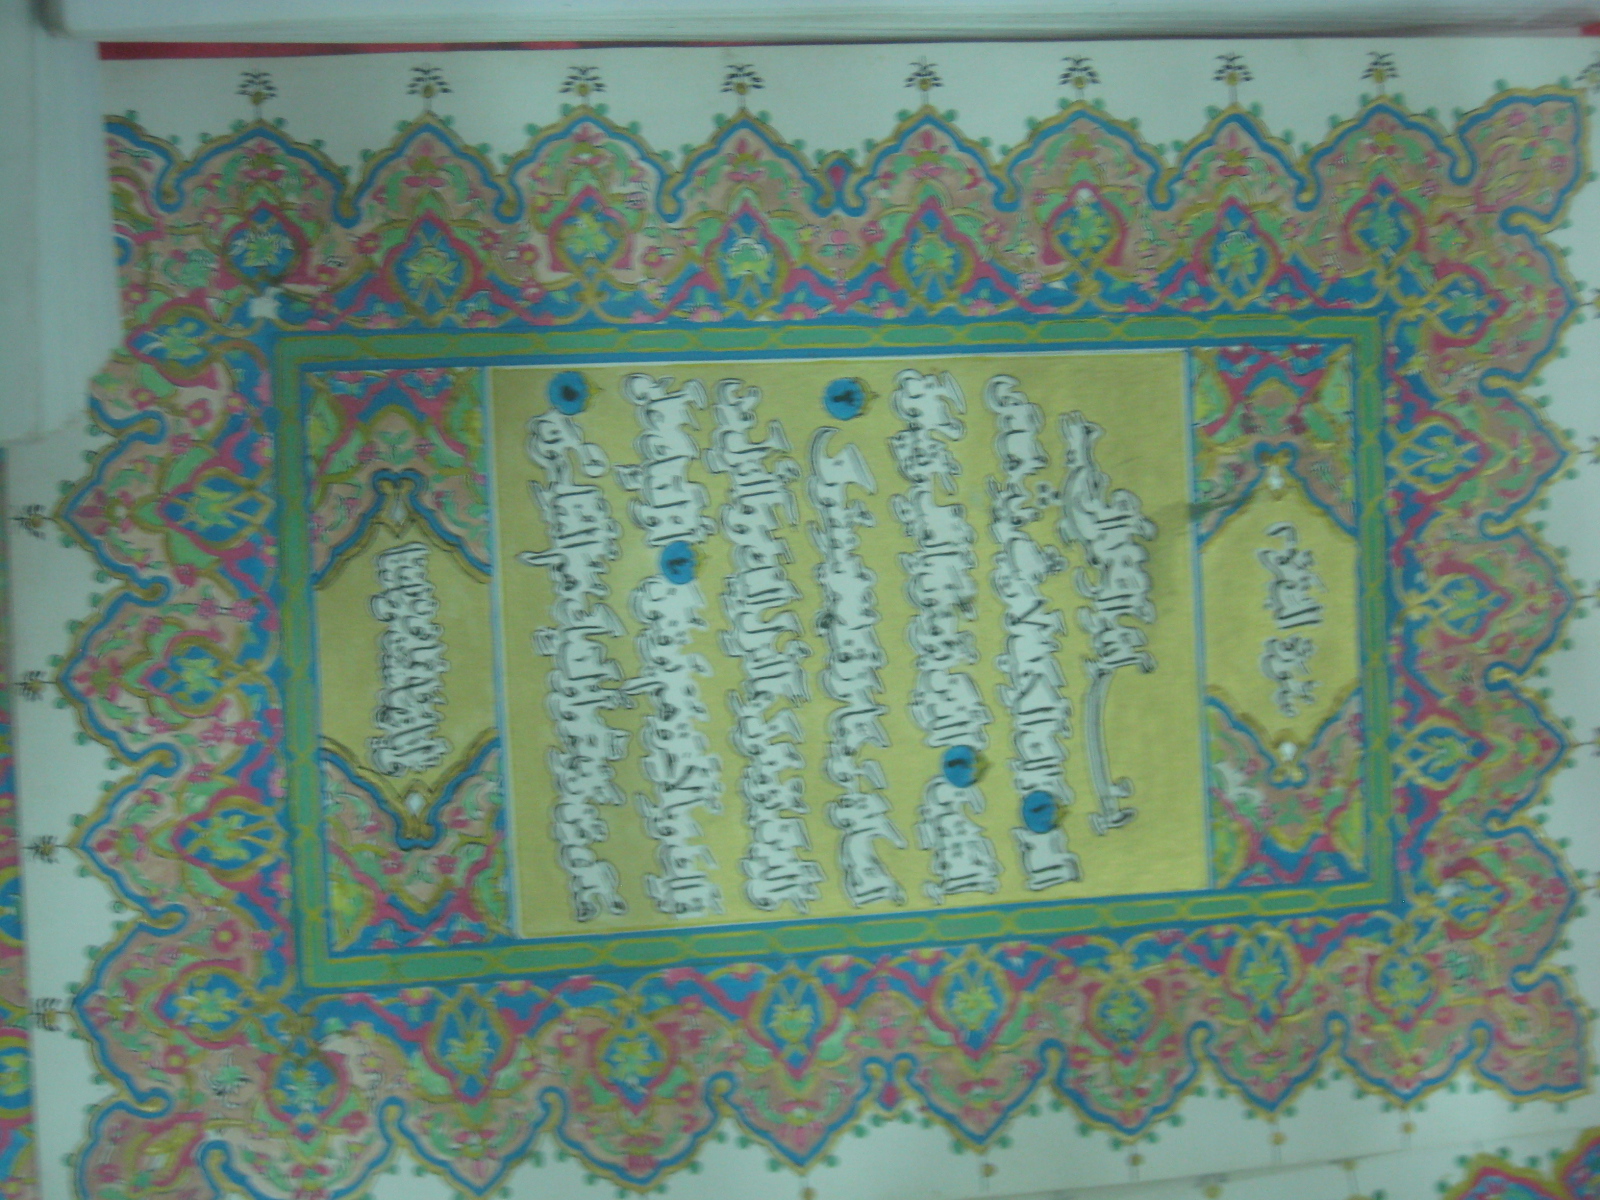 سورة البقرة
بسم الله الرحمن الرحيم
الم ١ ذلك الكتاب لا ريب فيه هدى
للمتقين ٢ الذين يؤمنون بالغيب ويقيمون
الصلاة ومما رزقناهم ينفقون ٣
والذين يؤمنون بما أنزل إليك وما أنزل من
قبلك وبالآخرة هم يوقنون ٤ أولئك على
هدى من ربهم وأولئك هم المفلحون ٥